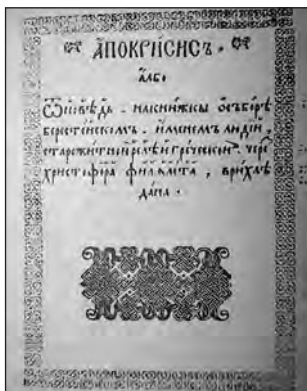 АПОКРИСИСЪ.
албо
Ѿповѣдь. на книжкы ѡ съборѣ
берестейскомъ. именемъ людій,
старожитнои релѣи греческои. чере
христофора филялета, врихлѣ
дана.